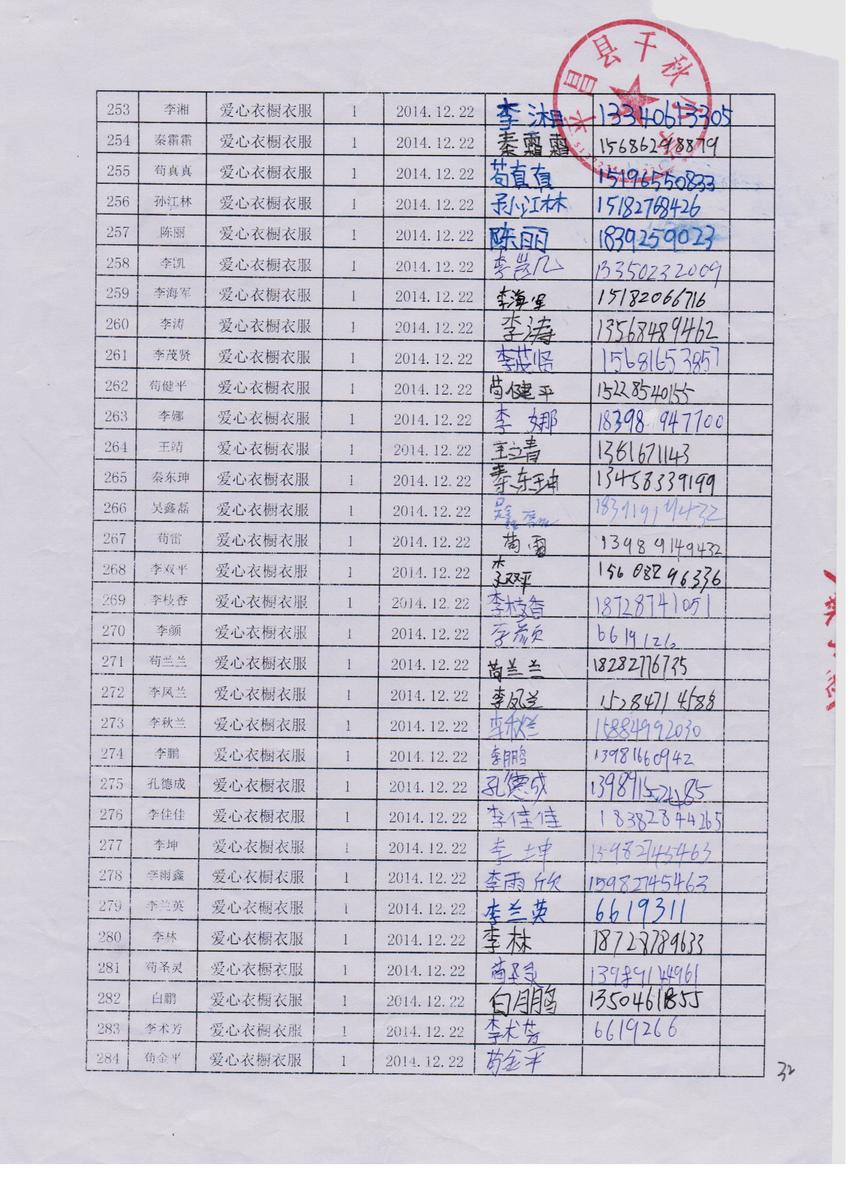 平昌县千秋
253 李湘 爱心衣橱衣服 1 2014.12.22 李湘 13340613305
254 秦霜霜 爱心衣橱衣服 1 2014.12.22 秦霜霜 15686298879
255 苟真真 爱心衣橱衣服 1 2014.12.22 苟真真 15196550833
256 孙江林 爱心衣橱衣服 1 2014.12.22 孙江林 15182768426
257 陈丽 爱心衣橱衣服 1 2014.12.22 陈丽 1839259023
258 李凯 爱心衣橱衣服 1 2014.12.22 李凯 13350232009
259 李海军 爱心衣橱衣服 1 2014.12.22 李海军 15182066716
260 李涛 爱心衣橱衣服 1 2014.12.22 李涛 13568489462
261 李茂贤 爱心衣橱衣服 1 2014.12.22 李茂贤 15681653857
262 苟健平 爱心衣橱衣服 1 2014.12.22 苟健平 15228540155
263 李娜 爱心衣橱衣服 1 2014.12.22 李娜 18398947700
264 王靖 爱心衣橱衣服 1 2014.12.22 王靖 1361671143
265 秦东珅 爱心衣橱衣服 1 2014.12.22 秦东珅 13458339199
266 吴鑫磊 爱心衣橱衣服 1 2014.12.22
267 苟雷 爱心衣橱衣服 1 2014.12.22 苟雷 13989149432
268 李双平 爱心衣橱衣服 1 2014.12.22 李双平 15608296336
269 李枝香 爱心衣橱衣服 1 2014.12.22 李枝香 18728741051
270 李颜 爱心衣橱衣服 1 2014.12.22 李颜 6619126
271 苟兰兰 爱心衣橱衣服 1 2014.12.22 苟兰兰 18282776735
272 李凤兰 爱心衣橱衣服 1 2014.12.22 李凤兰 15284714588
273 李秋兰 爱心衣橱衣服 1 2014.12.22 李秋兰 15884992030
274 李鹏 爱心衣橱衣服 1 2014.12.22 李鹏 13981660942
275 孔德成 爱心衣橱衣服 1 2014.12.22 孔德成
276 李佳佳 爱心衣橱衣服 1 2014.12.22 李佳佳 18382844265
277 李坤 爱心衣橱衣服 1 2014.12.22 李坤 15982745463
278 李雨鑫 爱心衣橱衣服 1 2014.12.22 李雨欣 15982745463
279 李兰英 爱心衣橱衣服 1 2014.12.22 李兰英 6619311
280 李林 爱心衣橱衣服 1 2014.12.22 李林 18728789633
281 苟圣灵 爱心衣橱衣服 1 2014.12.22 苟圣灵 13989144961
282 白鹏 爱心衣橱衣服 1 2014.12.22 白鹏 1350461855
283 李术芳 爱心衣橱衣服 1 2014.12.22 李术芳 6619266
284 苟金平 爱心衣橱衣服 1 2014.12.22 苟金平
32